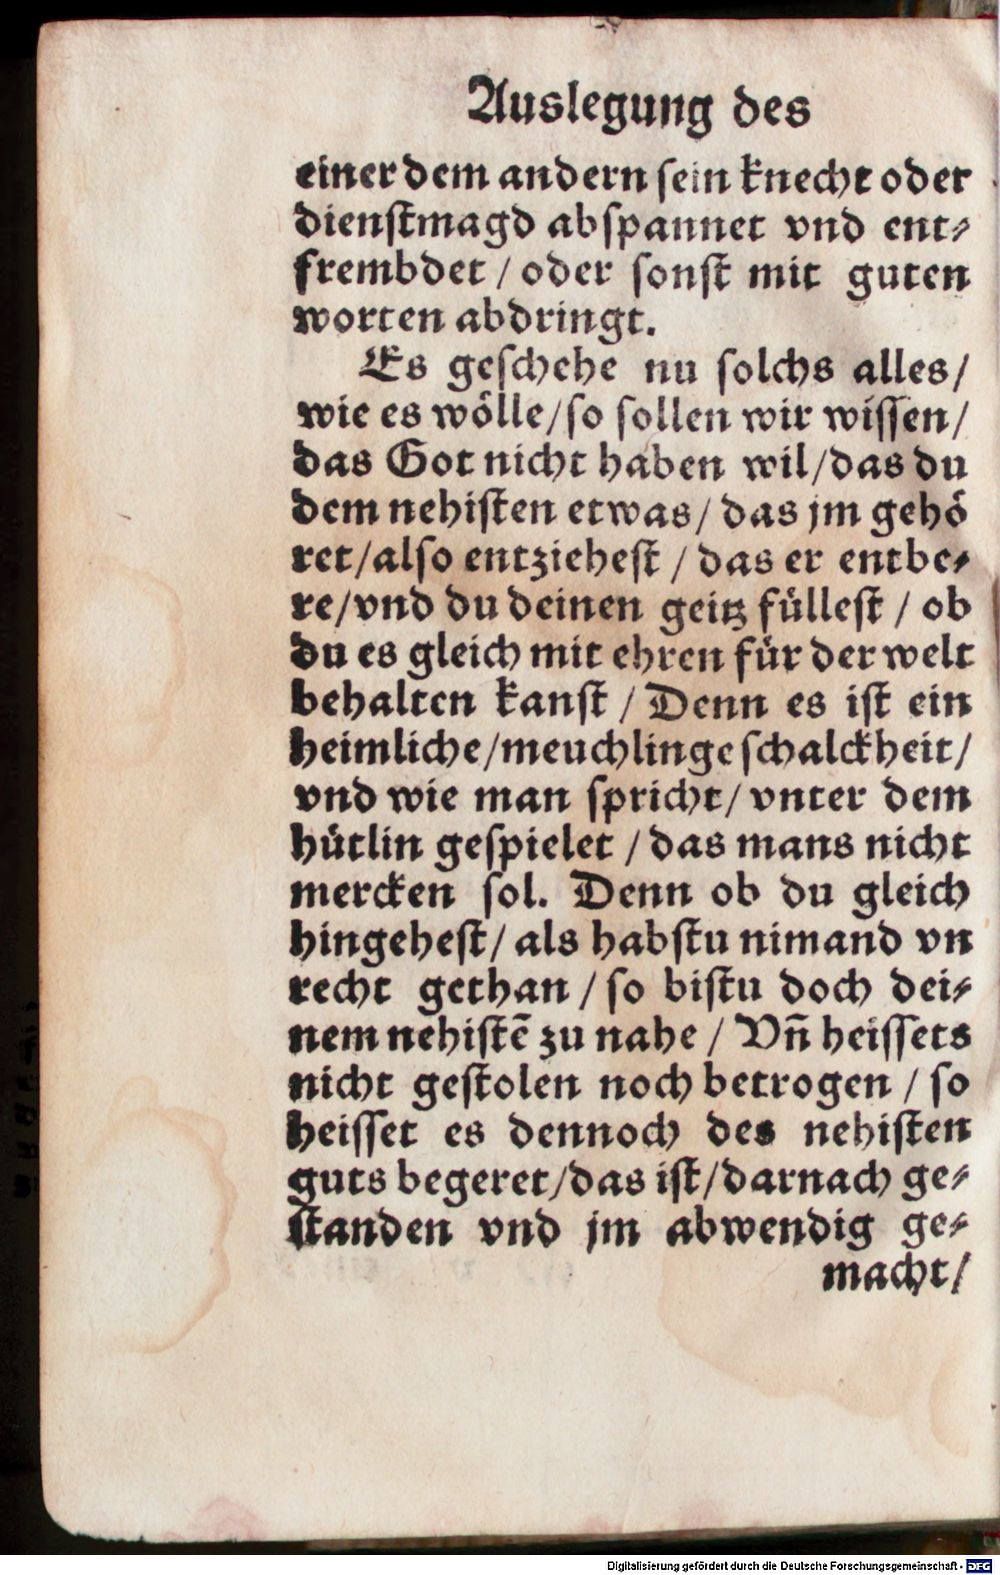 Auslegung des
einer dem andern sein knecht oder
dienstmagd abspannet vnd ent⸗
frembdet / oder sonst mit guten
worten abdringt.
Es geschehe nu solchs alles /
wie es wölle / so sollen wir wissen /
das Got nicht haben wil / das du
dem nehisten etwas / das jm gehö
ret / also entziehest / das er entbe⸗
re / vnd du deinen geitz füllest / ob
du es gleich mit ehren für der welt
behalten kanst / Denn es ist ein
heimliche / meuchlinge schalckheit /
vnd wie man spricht / vnter dem
hütlin gespielet / das mans nicht
mercken sol. Denn ob du gleich
hingehest / als habstu nimand vn
recht gethan / so bistu doch dei⸗
nem nehistē zu nahe / Vñ heissets
nicht gestolen noch betrogen / so
heisset es dennoch des nehisten
guts begeret / das ist / darnach ge⸗
standen vnd jm abwendig ge⸗
macht /
Digitalisierung gefördert durch die Deutsche Forschungsgemeinschaft - DFG